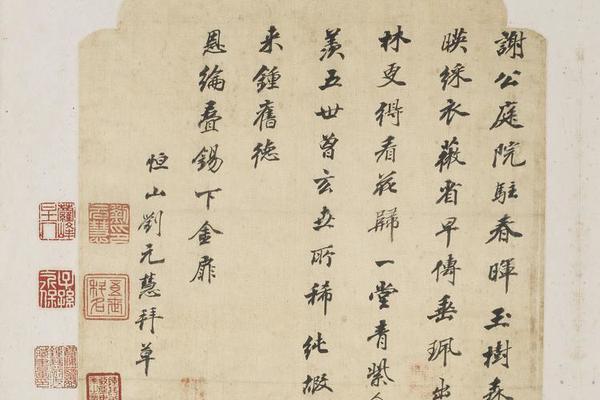 謝公庭院駐春暉玉樹森
暎綵衣薇省早傳垂珮
林更得看花歸一堂青紫
羨五世曾玄世所稀純嘏
来鍾舊徳
恩綸疊錫下金扉
恒山劉元慧拜草
子孫永保